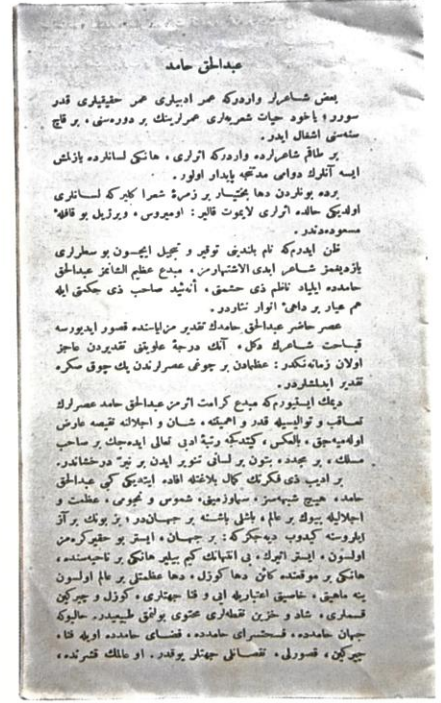 عبدالحق حامد
بعض شاعرلر واردركه عمر ادبیلری عمر حقیقیلری قدر
سورر؛ یاخود حیات شعریه‌لری عمرلرینك بر دوره‌سنی، بر قاچ
سنه‌سنی اشغال ایدر.
بر طاقم شاعرلرده واردركه اثرلری، هانكی لسانلرده یازلمش
ایسه آنلرك دوامی مدتجه پایدار اولور.
برده بونلردن دها بختیار بر زمرۀ شعرا كلیركه لسانلری
اولدیكی حالده اثرلری لایموت قالیر: اومیروس، ویرژیل بو قافلۀ
مسعوده‌دندر.
ظن ایدرم‌كه نام بلندینی توقیر و تبجیل ایچون بو سطرلری
یازدیغمز شاعر ابدی الاشتهارمز، مبدع عظیم الشانمز عبدالحق
حامدده ایلیاد ناظم ذی حشمتی، آنه‌ئید صاحب ذی حكمتی ایله
هم عیار بر داهیٔ انوار نثاردر.
عصر حاضر عبدالحق حامدك تقدیر مزایاسنده قصور ایدیورسه
قباحت شاعرك دكل، آنك درجۀ علویتنی تقدیردن عاجز
اولان زمانه‌نكدر: عظمادن بر چوغی عصرلرندن پك چوق صكره
تقدیر ایدلمشلردر.
دیمك ایستیورم‌كه مبدع كرامت اثرمز عبدالحق حامد عصرلرك
تعاقب و توالیسیله قدر و اهمیتنه، شان و اجلالنه نقیصه عارض
اوله‌میه‌جق، بالعكس، كیتدكجه رتبۀ ادبی تعالی ایده‌جك بر صاحب
مسلك، بر مجدد، بتون بر لسانی تنویر ایدن بر نیر درخشاندر.
بر ادیب ذی فكرتك كمال بلاغتله افاده ایتدیكی كبی عبدالحق
حامد، هیچ شبهه‌سز، سماوزمینی، شموس و نجومی، عظمت و
اجلالیله بیوك بر عالم، باشلی باشنه بر جهان‌در؛ بز بونك بر آز
ایلروسنه كیدوب دیه‌جكزكه: بر جهان، ایستر بو حقیر كره‌مز
اولسون، ایستر اثیرك، بی انتهانك كیم بیلیر هانكی بر ناحیه‌سنده،
هانكی بر موقعنده كائن دها كوزل، دها عظمتلی بر عالم اولسون
ینه ماهیتی، خاصیتی اعتباریله ایی و فنا جهتلری، كوزل و چیركین
قسملری، شاد و حزین نقطه‌لری محتوی بولنمق طبیعیدر. حالبوكه
جهان حامدده، فسحتسرای حامدده، فضای حامدده اویله فنا،
چیركین، قصورلی، نقصانلی جهتلر یوقدر. او عالمك قشرنده،